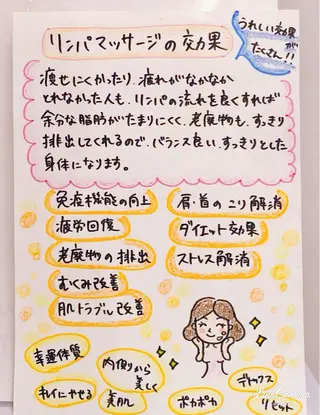 リンパマッサージの効果
うれしい効果が
たくさん!!
痩せにくかったり、疲れがなかなか
とれなかった人も、リンパの流れを良くすれば
余分な脂肪がたまりにくく、老廃物も、すっきり
排出してくれるので、バランス良い、すっきりとした
身体になります。
免疫機能の向上
疲労回復
老廃物の排出
むくみ改善
肌トラブル改善
肩・首のこり解消
ダイエット効果
ストレス解消
幸運体質
キレイにやせる
内側から
美しく
美肌
ポカポカ
デトックス
リセット